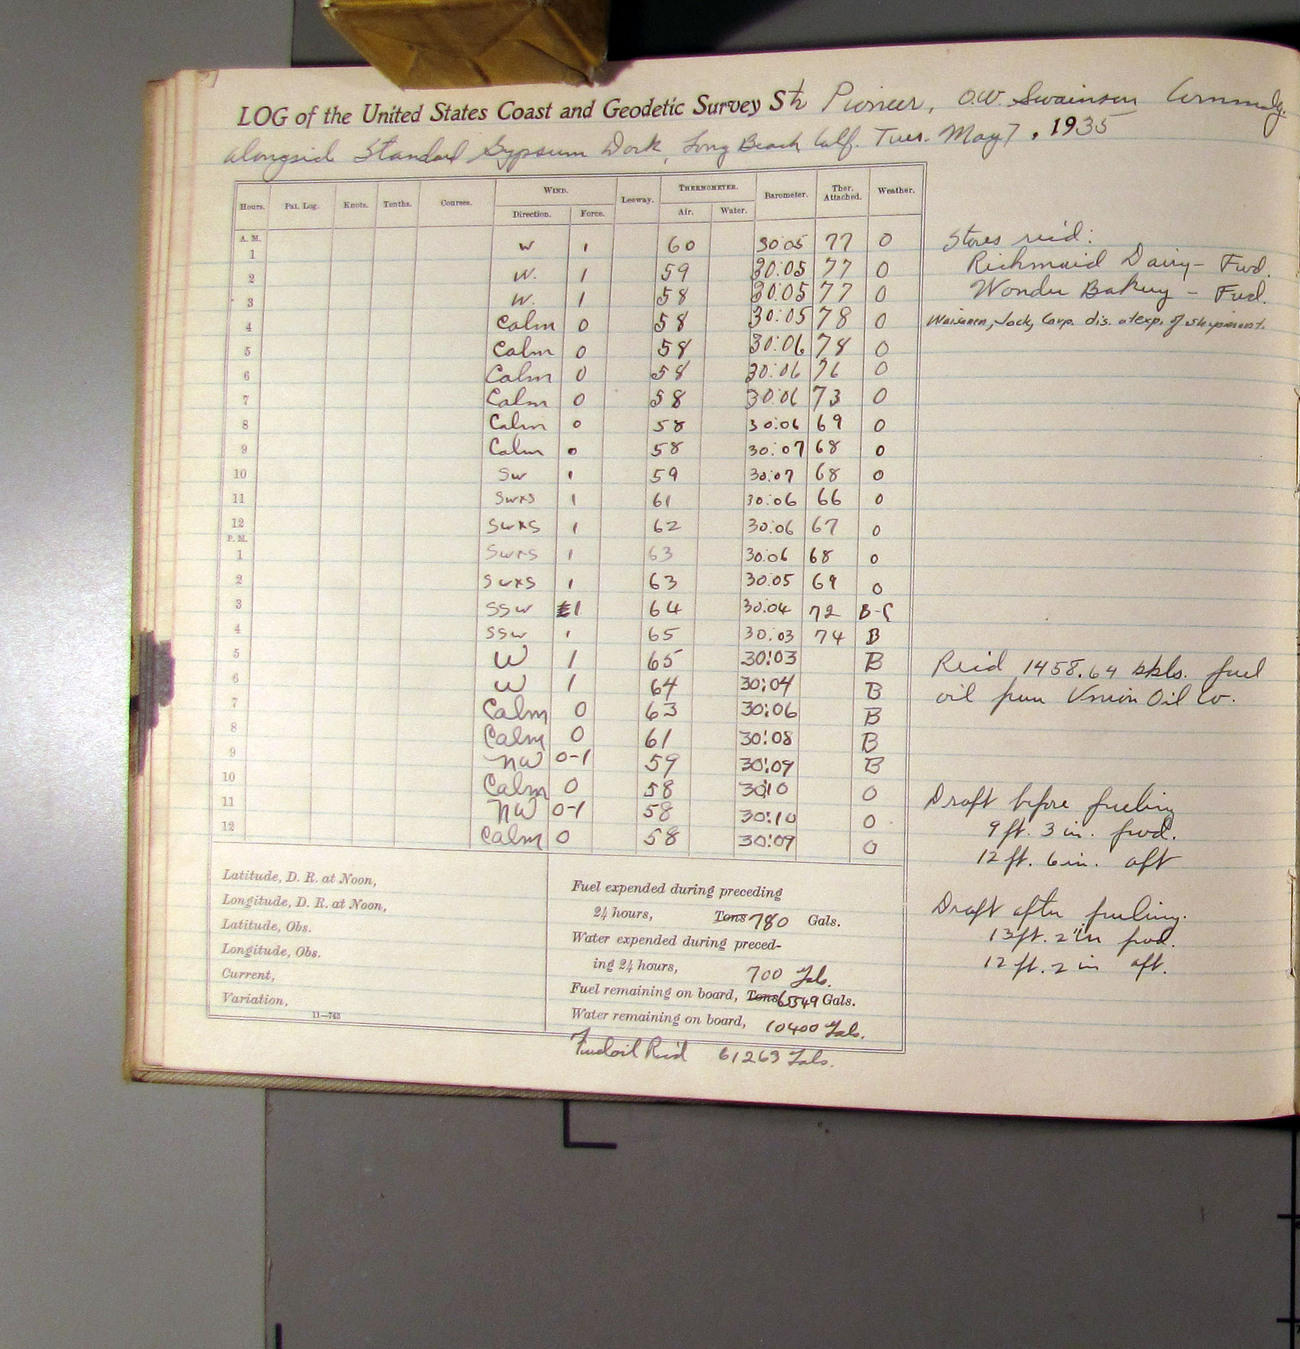 LOG of the United States Coast and Geodetic Survey Str Pioneer, O.W. Swainson Commdg.
alongside Standard Gypsum Dock, Long Beach Calf. Tues. May 7, 1935
Hours. Pat. Log. Knots. Tenths. Courses. WIND. Leeway. THERMOMETER. Barometer. Ther. Attached. Weather.
Direction. Force. Air. Water.
A. M.
1 W 1 60 30:05 77 0
2 W. 1 59 30:05 77 0
3 W. 1 58 30:05 77 0
4 Calm 0 58 30:05 78 0
5 Calm 0 58 30:06 78 0
6 Calm 0 58 30:06 76 0
7 Calm 0 58 30:06 73 0
8 Calm 0 58 30:06 69 0
9 Calm 0 58 30:07 68 0
10 SW 1 59 30:07 68 0
11 SWXS 1 61 30:06 66 0
12 SWXS 1 62 30:06 67 0
P. M.
1 SWXS 1 63 30:06 68 0
2 SWXS 1 63 30:05 69 0
3 SSW 1 64 30:04 72 B-C
4 SSW 1 65 30:03 74 B
5 W 1 65 30:03 B
6 W 1 64 30:04 B
7 Calm 0 63 30:06 B
8 Calm 0 61 30:08 B
9 NW 0-1 59 30:09 B
10 Calm 0 58 30:10 0
11 NW 0-1 58 30:10 0
12 Calm 0 58 30:09 0
Stores rec'd:
Richmaid Dairy - Fwd.
Wonder Bakery - Fwd.
Jack, Corp. dis. at exp. of shipment.
Rec'd 1458.64 bbls. fuel
oil from Union Oil Co.
Draft before fueling
9 ft. 3 in. fwd.
12 ft. 6 in. aft
Draft after fueling.
13 ft. 2 in fwd.
12 ft. 2 in aft.
Latitude, D. R. at Noon,
Longitude, D. R. at Noon,
Latitude, Obs.
Longitude, Obs.
Current,
Variation,
11—743
Fuel expended during preceding
24 hours, Tons 780 Gals.
Water expended during preced-
ing 24 hours, 700 Gals.
Fuel remaining on board, Tons 65549 Gals.
Water remaining on board, 10400 Gals.
Fuel oil Rec'd 61263 Gals.